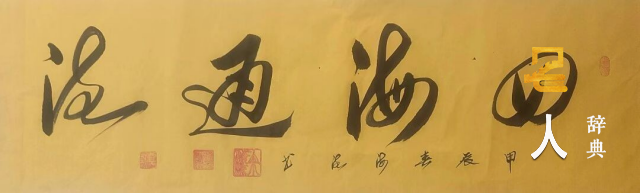 四海通達
甲辰春
名人
辞典